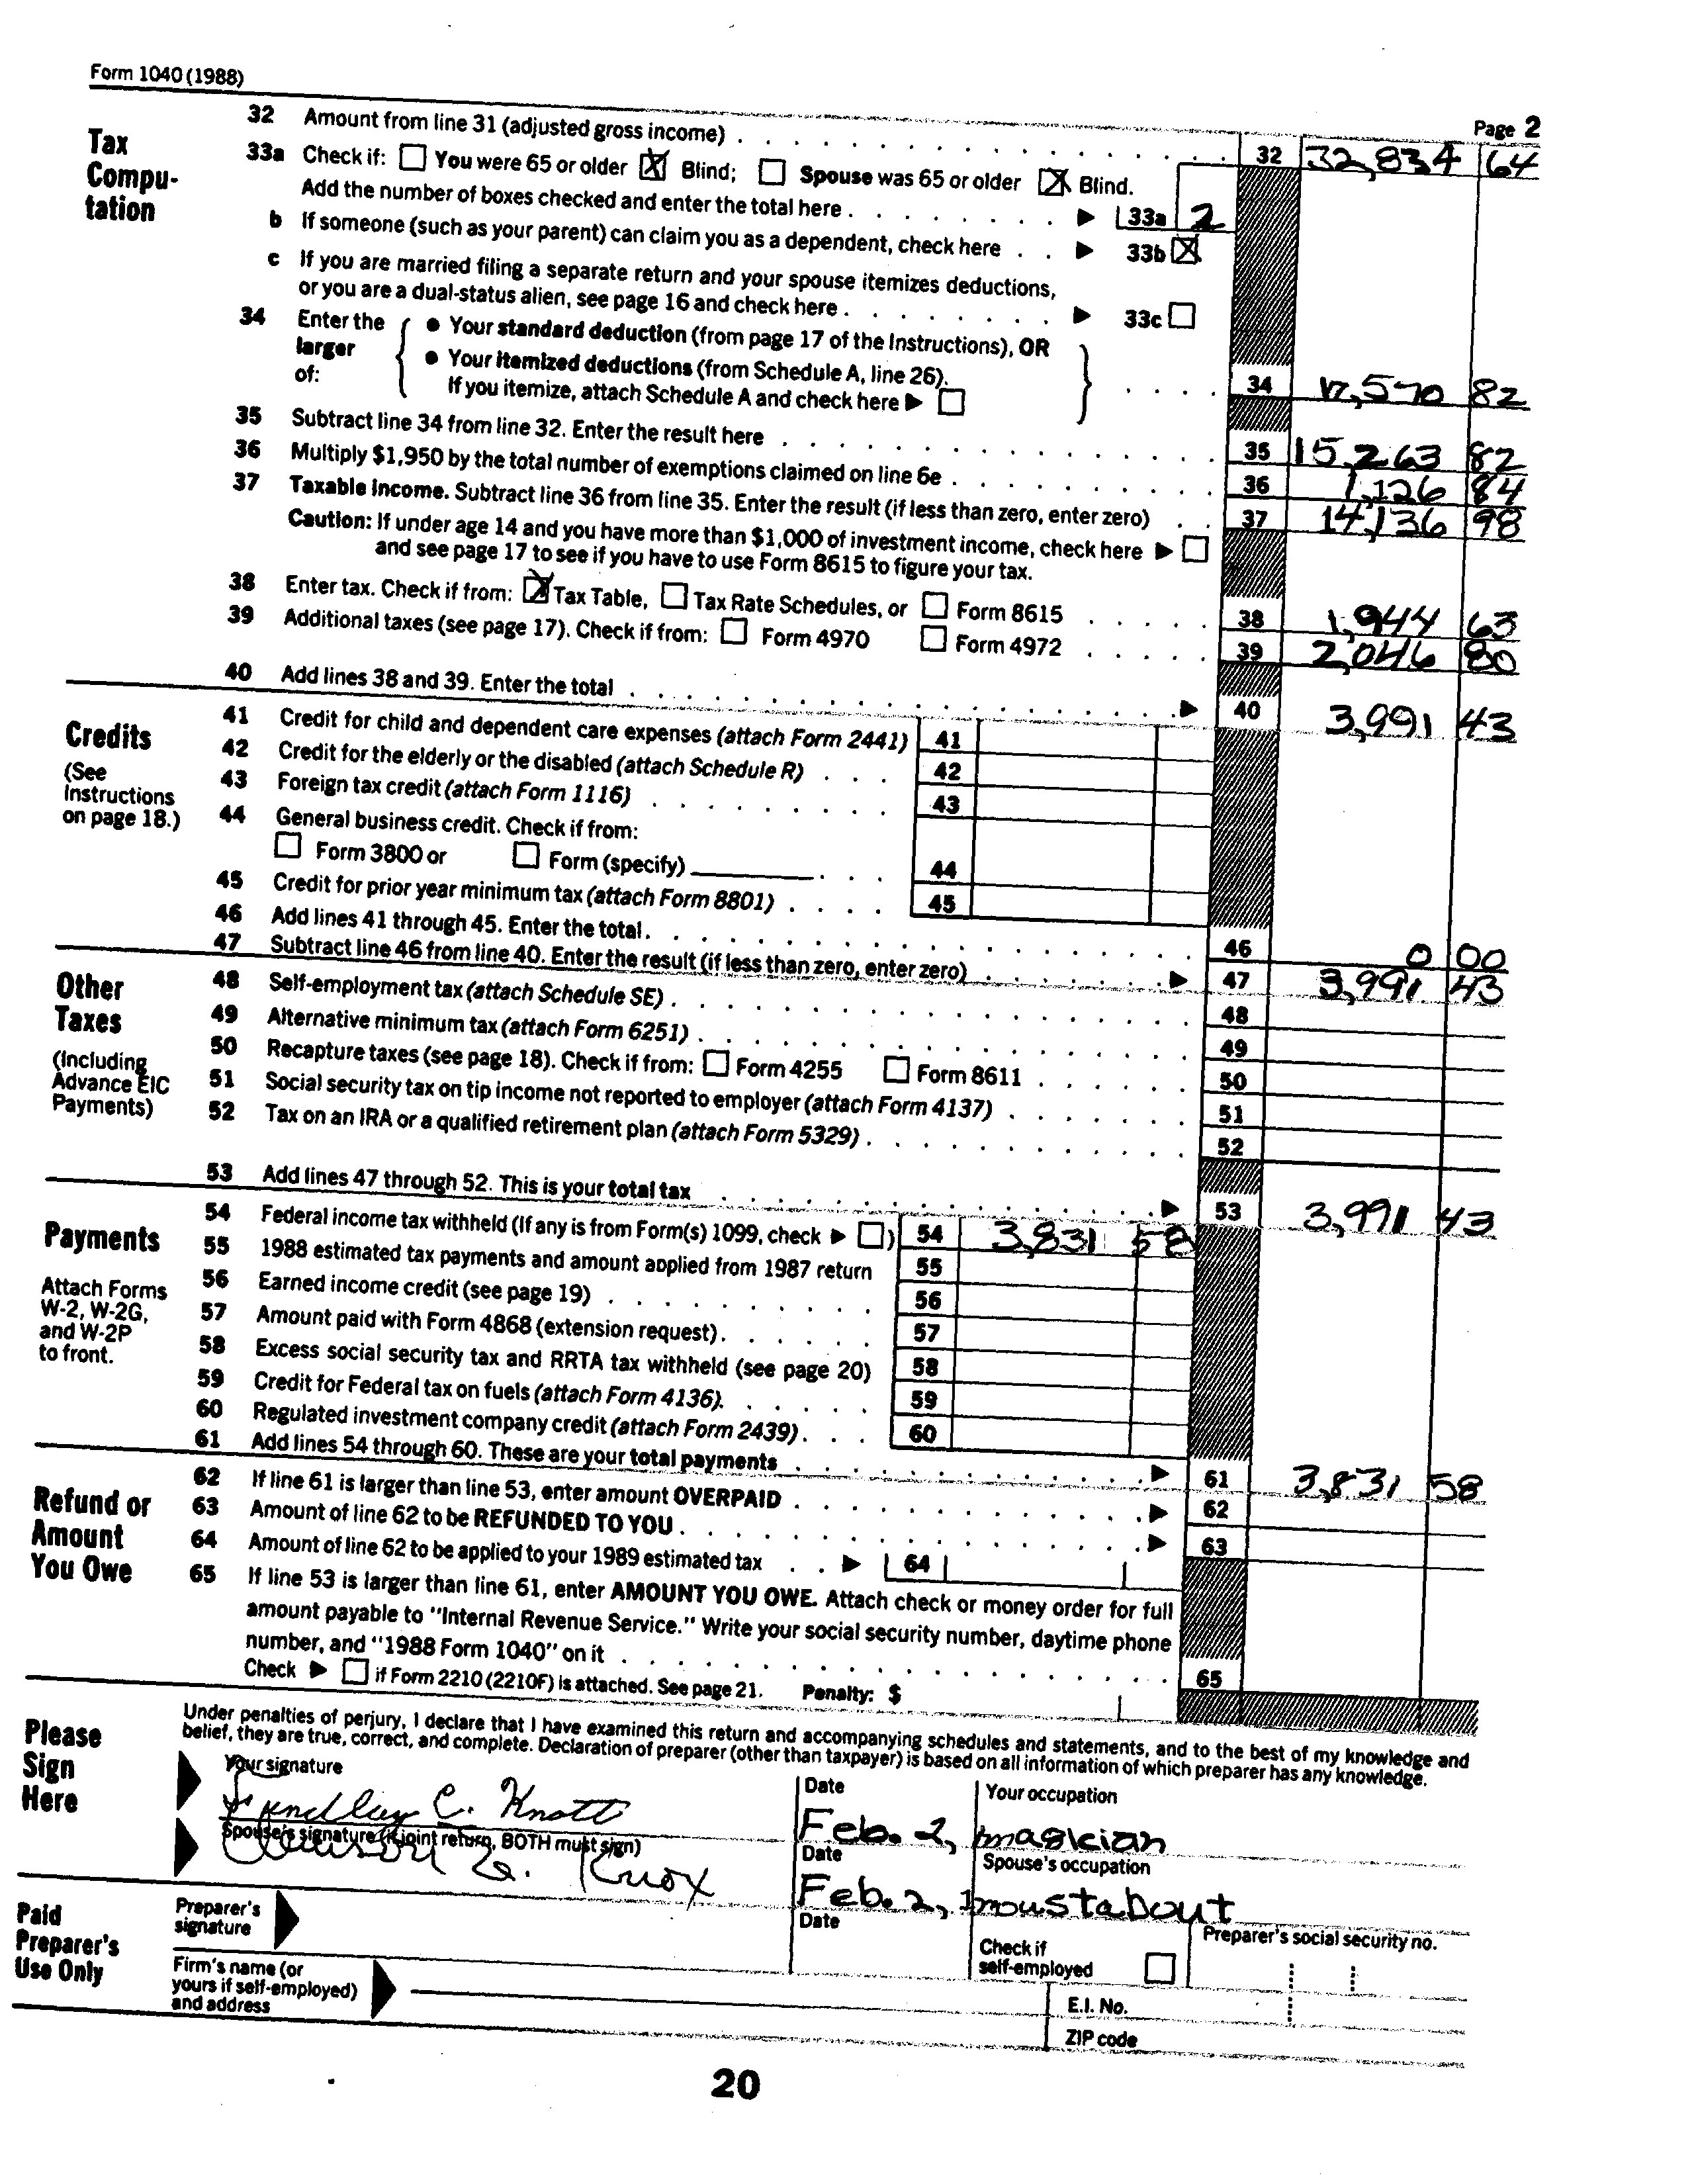 Form 1040 (1988)
Page 2
Tax Compu-tation
32 Amount from line 31 (adjusted gross income) . . . 32 32,834 64
33a Check if: ☐ You were 65 or older ☒ Blind; ☐ Spouse was 65 or older ☒ Blind.
Add the number of boxes checked and enter the total here . . . ▶ 33a 2
b If someone (such as your parent) can claim you as a dependent, check here . . ▶ 33b ☒
c If you are married filing a separate return and your spouse itemizes deductions,
or you are a dual-status alien, see page 16 and check here . . . ▶ 33c ☐
34 Enter the larger of: { ● Your standard deduction (from page 17 of the Instructions), OR
● Your itemized deductions (from Schedule A, line 26).
If you itemize, attach Schedule A and check here ▶ ☐ } . . . 34 17,570 82
35 Subtract line 34 from line 32. Enter the result here . . . 35 15,263 82
36 Multiply $1,950 by the total number of exemptions claimed on line 6e . . . 36 1,126 84
37 Taxable income. Subtract line 36 from line 35. Enter the result (if less than zero, enter zero) . . 37 14,136 98
Caution: If under age 14 and you have more than $1,000 of investment income, check here ▶ ☐
and see page 17 to see if you have to use Form 8615 to figure your tax.
38 Enter tax. Check if from: ☒ Tax Table, ☐ Tax Rate Schedules, or ☐ Form 8615 . . . 38 1,944 63
39 Additional taxes (see page 17). Check if from: ☐ Form 4970 ☐ Form 4972 . . . 39 2,046 80
40 Add lines 38 and 39. Enter the total . . . ▶ 40 3,991 43
Credits
(See Instructions on page 18.)
41 Credit for child and dependent care expenses (attach Form 2441) 41
42 Credit for the elderly or the disabled (attach Schedule R) . . . 42
43 Foreign tax credit (attach Form 1116) . . . 43
44 General business credit. Check if from:
☐ Form 3800 or ☐ Form (specify) ______ . . . 44
45 Credit for prior year minimum tax (attach Form 8801) . . . 45
46 Add lines 41 through 45. Enter the total . . . 46 0 00
47 Subtract line 46 from line 40. Enter the result (if less than zero, enter zero) . . . ▶ 47 3,991 43
Other Taxes
(Including Advance EIC Payments)
48 Self-employment tax (attach Schedule SE) . . . 48
49 Alternative minimum tax (attach Form 6251) . . . 49
50 Recapture taxes (see page 18). Check if from: ☐ Form 4255 ☐ Form 8611 . . . 50
51 Social security tax on tip income not reported to employer (attach Form 4137) . . . 51
52 Tax on an IRA or a qualified retirement plan (attach Form 5329) . . . 52
53 Add lines 47 through 52. This is your total tax . . . ▶ 53 3,991 43
Payments
Attach Forms W-2, W-2G, and W-2P to front.
54 Federal income tax withheld (If any is from Form(s) 1099, check ▶ ☐) 54 3,831 58
55 1988 estimated tax payments and amount applied from 1987 return 55
56 Earned income credit (see page 19) . . . 56
57 Amount paid with Form 4868 (extension request) . . . 57
58 Excess social security tax and RRTA tax withheld (see page 20) 58
59 Credit for Federal tax on fuels (attach Form 4136) . . . 59
60 Regulated investment company credit (attach Form 2439) . . . 60
61 Add lines 54 through 60. These are your total payments . . . ▶ 61 3,831 58
Refund or Amount You Owe
62 If line 61 is larger than line 53, enter amount OVERPAID . . . ▶ 62
63 Amount of line 62 to be REFUNDED TO YOU . . . ▶ 63
64 Amount of line 62 to be applied to your 1989 estimated tax . . ▶ 64
65 If line 53 is larger than line 61, enter AMOUNT YOU OWE. Attach check or money order for full
amount payable to "Internal Revenue Service." Write your social security number, daytime phone
number, and "1988 Form 1040" on it . . . 65
Check ▶ ☐ if Form 2210 (2210F) is attached. See page 21. Penalty: $
Please Sign Here
Under penalties of perjury, I declare that I have examined this return and accompanying schedules and statements, and to the best of my knowledge and
belief, they are true, correct, and complete. Declaration of preparer (other than taxpayer) is based on all information of which preparer has any knowledge.
Your signature
C. Knott
Date
Feb. 2,
Your occupation
magician
Spouse's signature (if joint return, BOTH must sign)
Knox
Date
Feb. 2,
Spouse's occupation
roustabout
Paid Preparer's Use Only
Preparer's signature
Date
Check if self-employed ☐
Preparer's social security no.
Firm's name (or yours if self-employed) and address
E.I. No.
ZIP code
20